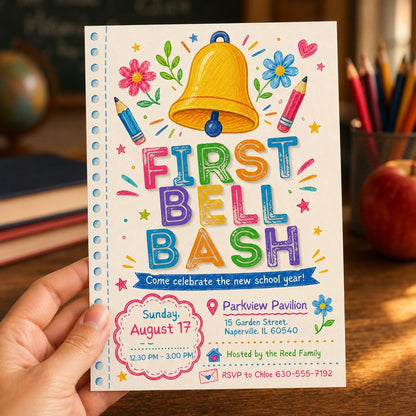 FIRST
BELL
BASH
Come celebrate the new school year!
Sunday,
August 17
12:30 PM - 3:00 PM
Parkview Pavilion
15 Garden Street,
Naperville, IL 60540
Hosted by the Reed Family
RSVP to Chloe 630-555-7192